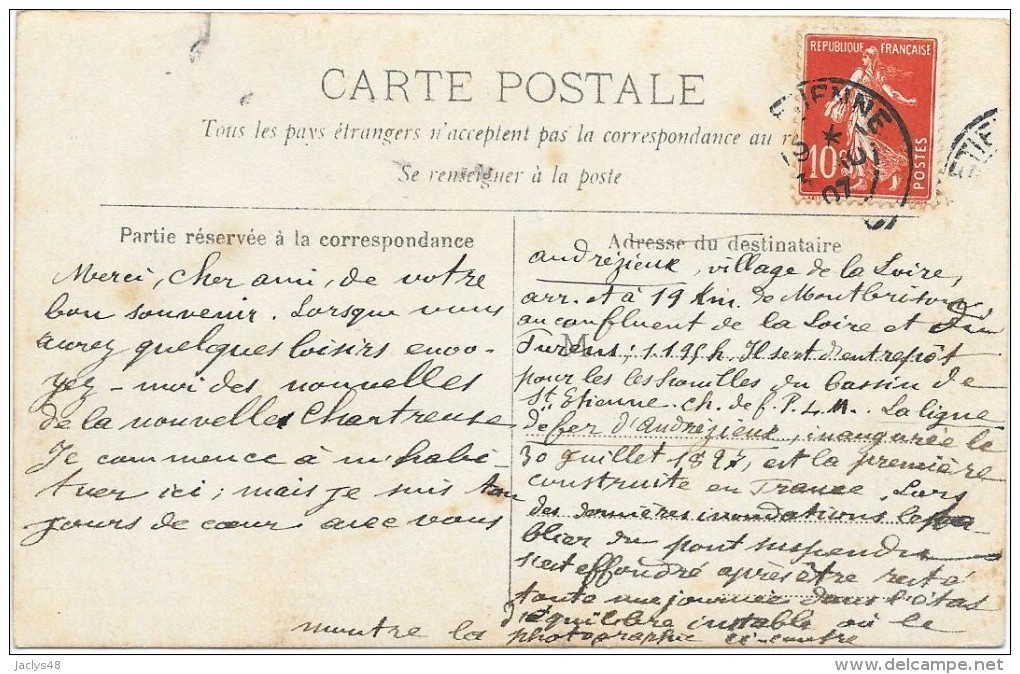 RÉPUBLIQUE FRANÇAISE
10c
POSTES
CARTE POSTALE
Tous les pays étrangers n'acceptent pas la correspondance au
Se renseigner à la poste
Partie réservée à la correspondance
Merci, cher ami, de votre
bon souvenir. Lorsque vous
aurez quelques loisirs envo-
yez-moi des nouvelles
de la nouvelle Chartreuse
Je commence à m'habi-
tuer ici; mais je suis tou
jours de cœur avec vous
Adresse du destinataire
M
Andrézieux, village de la Loire,
arr. et à 19 Km. de Montbrison
au confluent de la Loire et du
Furens; 1.195 h. Il sert d'entrepôt
pour les houilles du bassin de
St Etienne. Ch. de f. P.L.M.. La ligne
de fer d'Andrézieux, inaugurée le
30 Juillet 1827, est la première
construite en France. Lors
des dernières inondations le ta
blier du pont suspendu
s'est effondré après être resté
toute une journée dans l'état
d'équilibre instable où le
montre la photographie ci-contre
jaclys48
www.delcampe.net